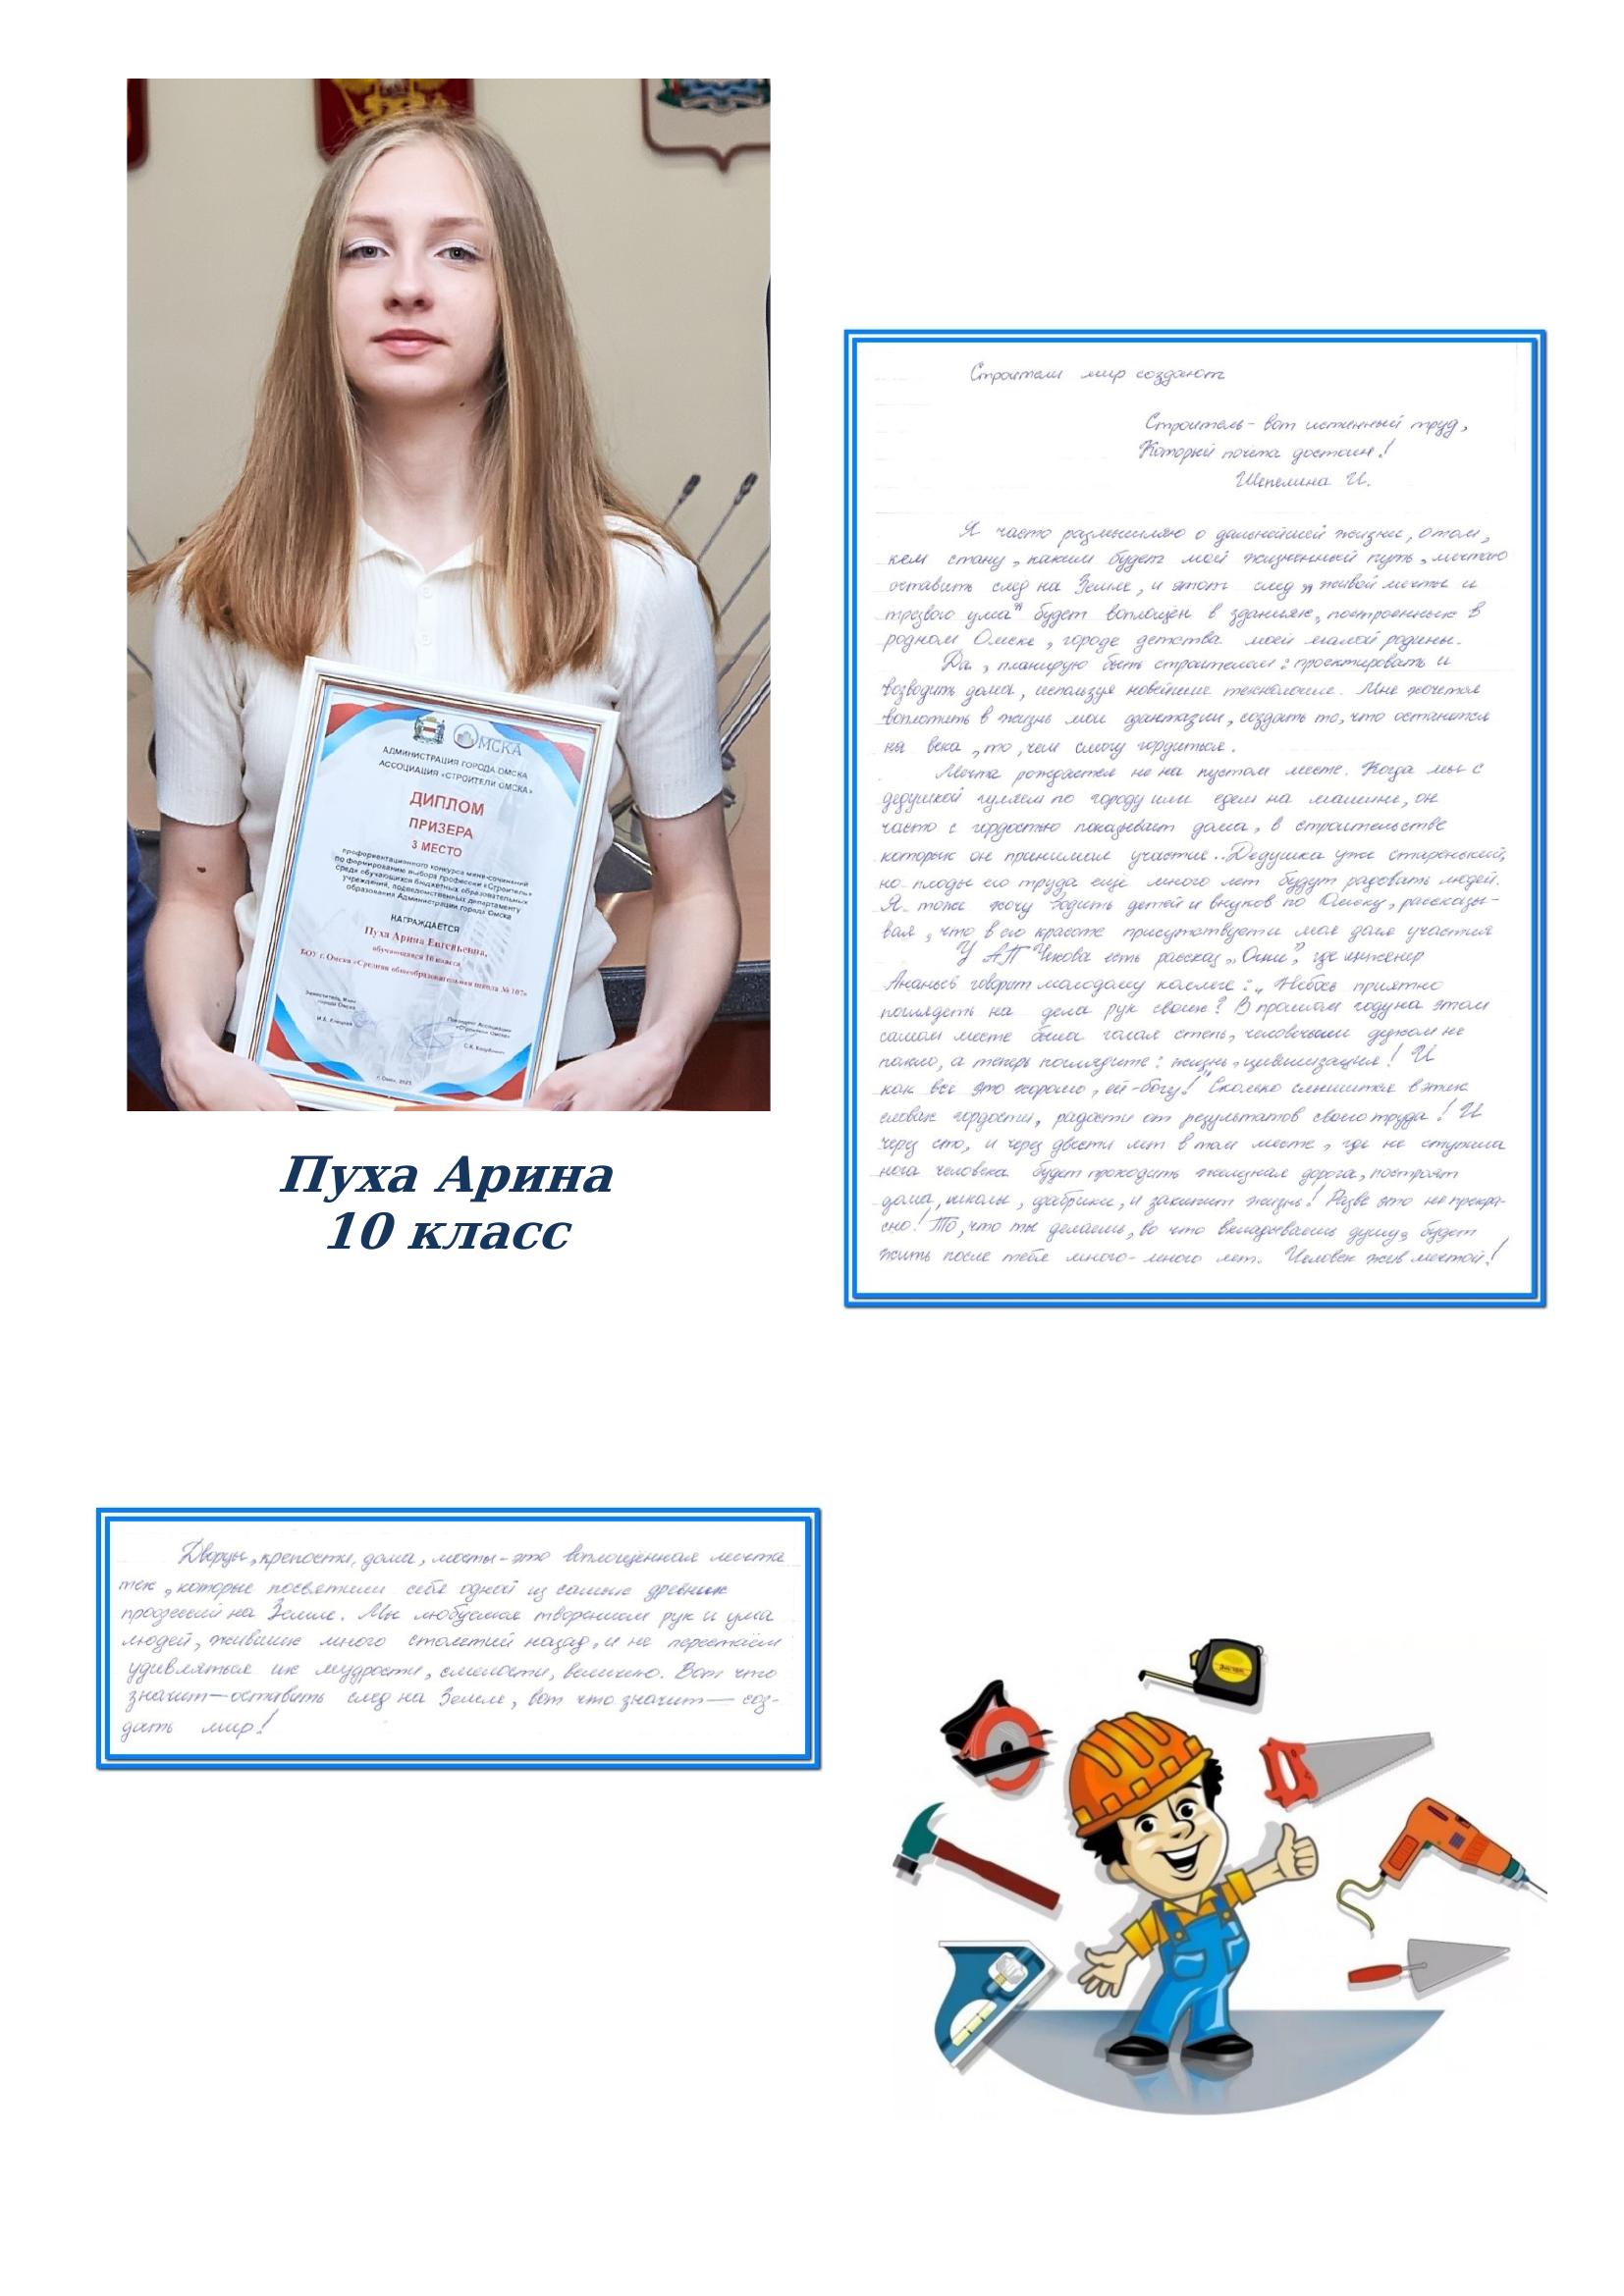 ОМСКА
АДМИНИСТРАЦИЯ ГОРОДА ОМСКА
АССОЦИАЦИЯ «СТРОИТЕЛИ ОМСКА»
ДИПЛОМ
ПРИЗЕРА
3 МЕСТО
профориентационного конкурса мини-сочинений
по формированию выбора профессии «Строитель»
среди обучающихся бюджетных образовательных
учреждений, подведомственных департаменту
образования Администрации города Омска
НАГРАЖДАЕТСЯ
Пуха Арина Евгеньевна,
обучающаяся 10 класса
БОУ г. Омска «Средняя общеобразовательная школа № 107»
Президент Ассоциации
«Строители Омска»
г. Омск, 2023
Пуха Арина
10 класс
Строители мир создают
Строитель - вот истинный труд,
Который почёта достоин!
Шепелина И.
Я часто размышляю о дальнейшей жизни, о том,
кем стану, каким будет мой жизненный путь, мечтаю
оставить след на Земле, и этот след „живой мечты и
трезвого ума" будет воплощён в зданиях, построенных в
родном Омске, городе детства моей малой родины.
Да, планирую быть строителем: проектировать и
возводить дома, используя новейшие технологии. Мне хочется
воплотить в жизнь мои фантазии, создать то, что останется
на века, то, чем смогу гордиться.
Мечта рождается не на пустом месте. Когда мы с
дедушкой гуляем по городу или едем на машине, он
часто с гордостью показывает дома, в строительстве
которых он принимал участие.. Дедушка уже старенький,
но плоды его труда ещё много лет будут радовать людей.
Я тоже хочу водить детей и внуков по Омску, рассказы-
вая, что в его красоте присутствует и моя доля участия
У АП Чехова есть рассказ „Огни", где инженер
Ананьев говорит молодому коллеге: „Небось приятно
поглядеть на дела рук своих? В прошлом году на этом
самом месте была голая степь, человечьим духом не
пахло, а теперь поглядите: жизнь, цивилизация! И
как все это хорошо, ей-богу!" Сколько слышится в этих
словах гордости, радости от результатов своего труда! И
через сто, и через двести лет в том месте, где не ступала
нога человека будет проходить железная дорога, построят
дома, школы, фабрики, и закипит жизнь! Разве это не прекра-
сно! То, что ты делаешь, во что вкладываешь душу, будет
жить после тебя много-много лет. Человек жив мечтой!
Дворцы, крепости, дома, мосты - это воплощённая мечта
тех, которые посвятили себя одной из самых древних
профессий на Земле. Мы любуемся творением рук и ума
людей, живших много столетий назад, и не перестаём
удивляться их мудрости, смелости, величию. Вот что
значит — оставить след на Земле, вот что значит — соз-
дать мир!